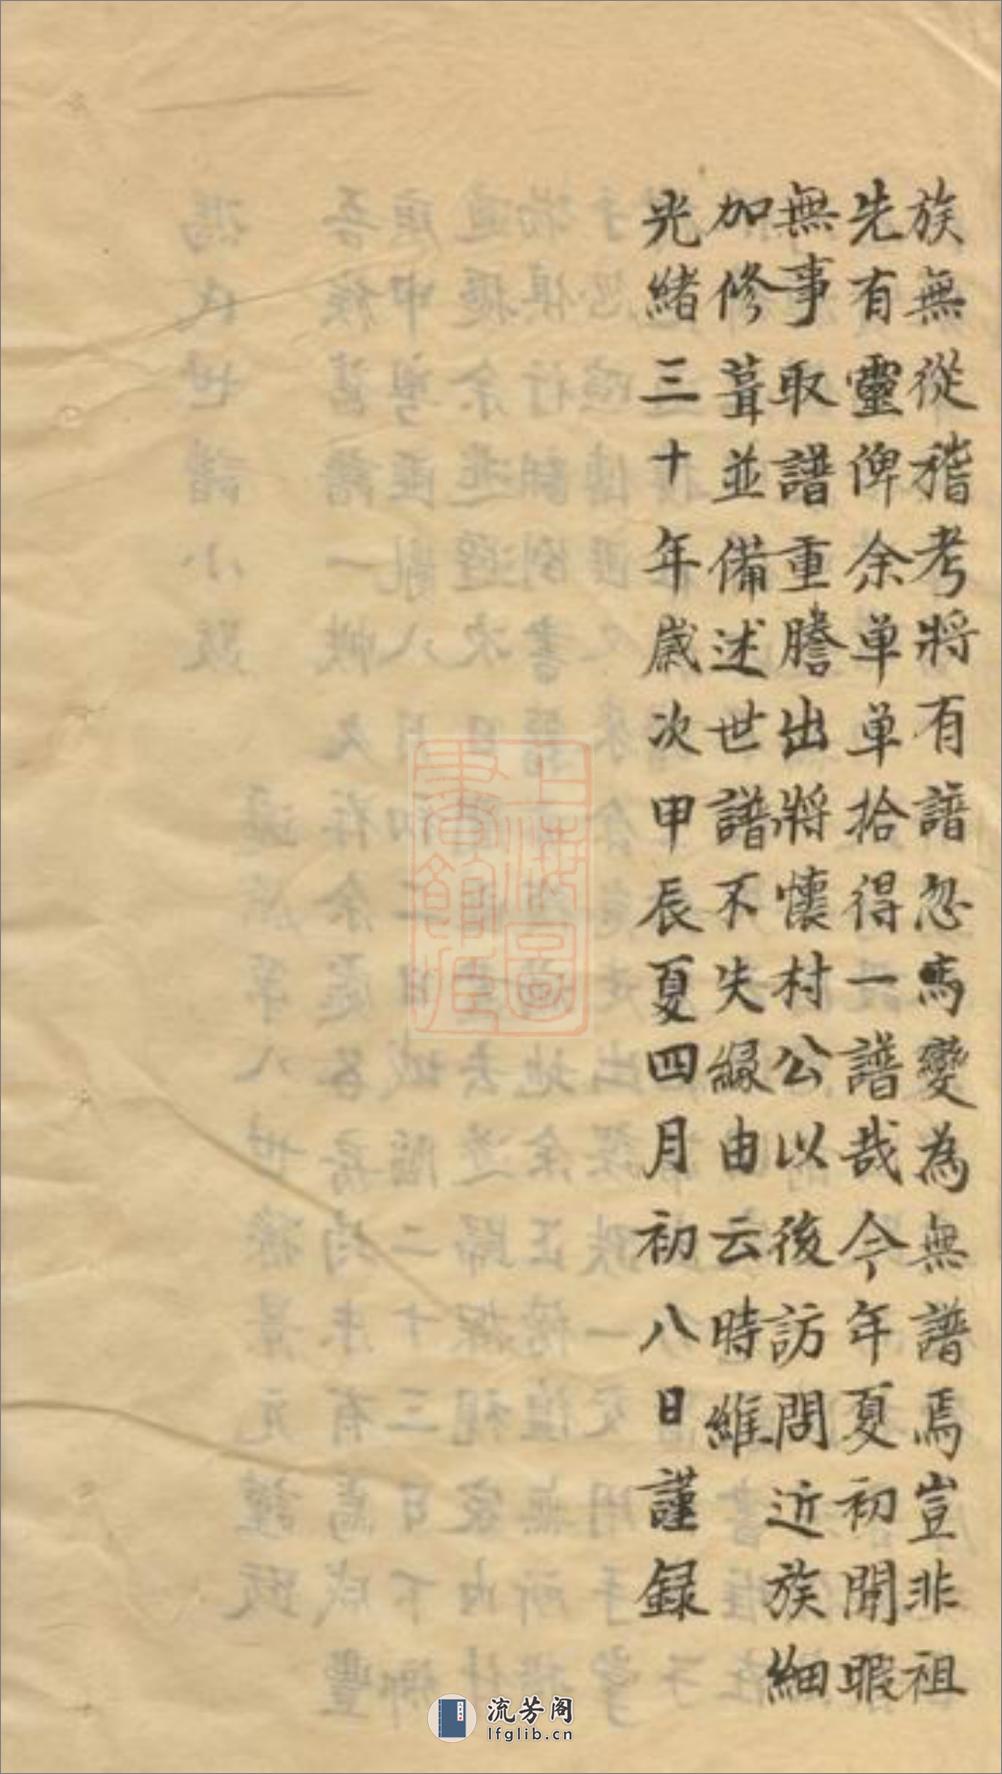 族無從稽考將有譜忽焉變為無譜焉豈非祖
先有靈俾余单单拾得一譜哉今年夏初閒暇
無事取譜重謄出將懷村公以後訪問近族細
加修葺並備述世譜不失緣由云時維
光緒三十年歲次甲辰夏四月初八日謹録
上海圖
書館藏
流芳阁
lfglib.cn